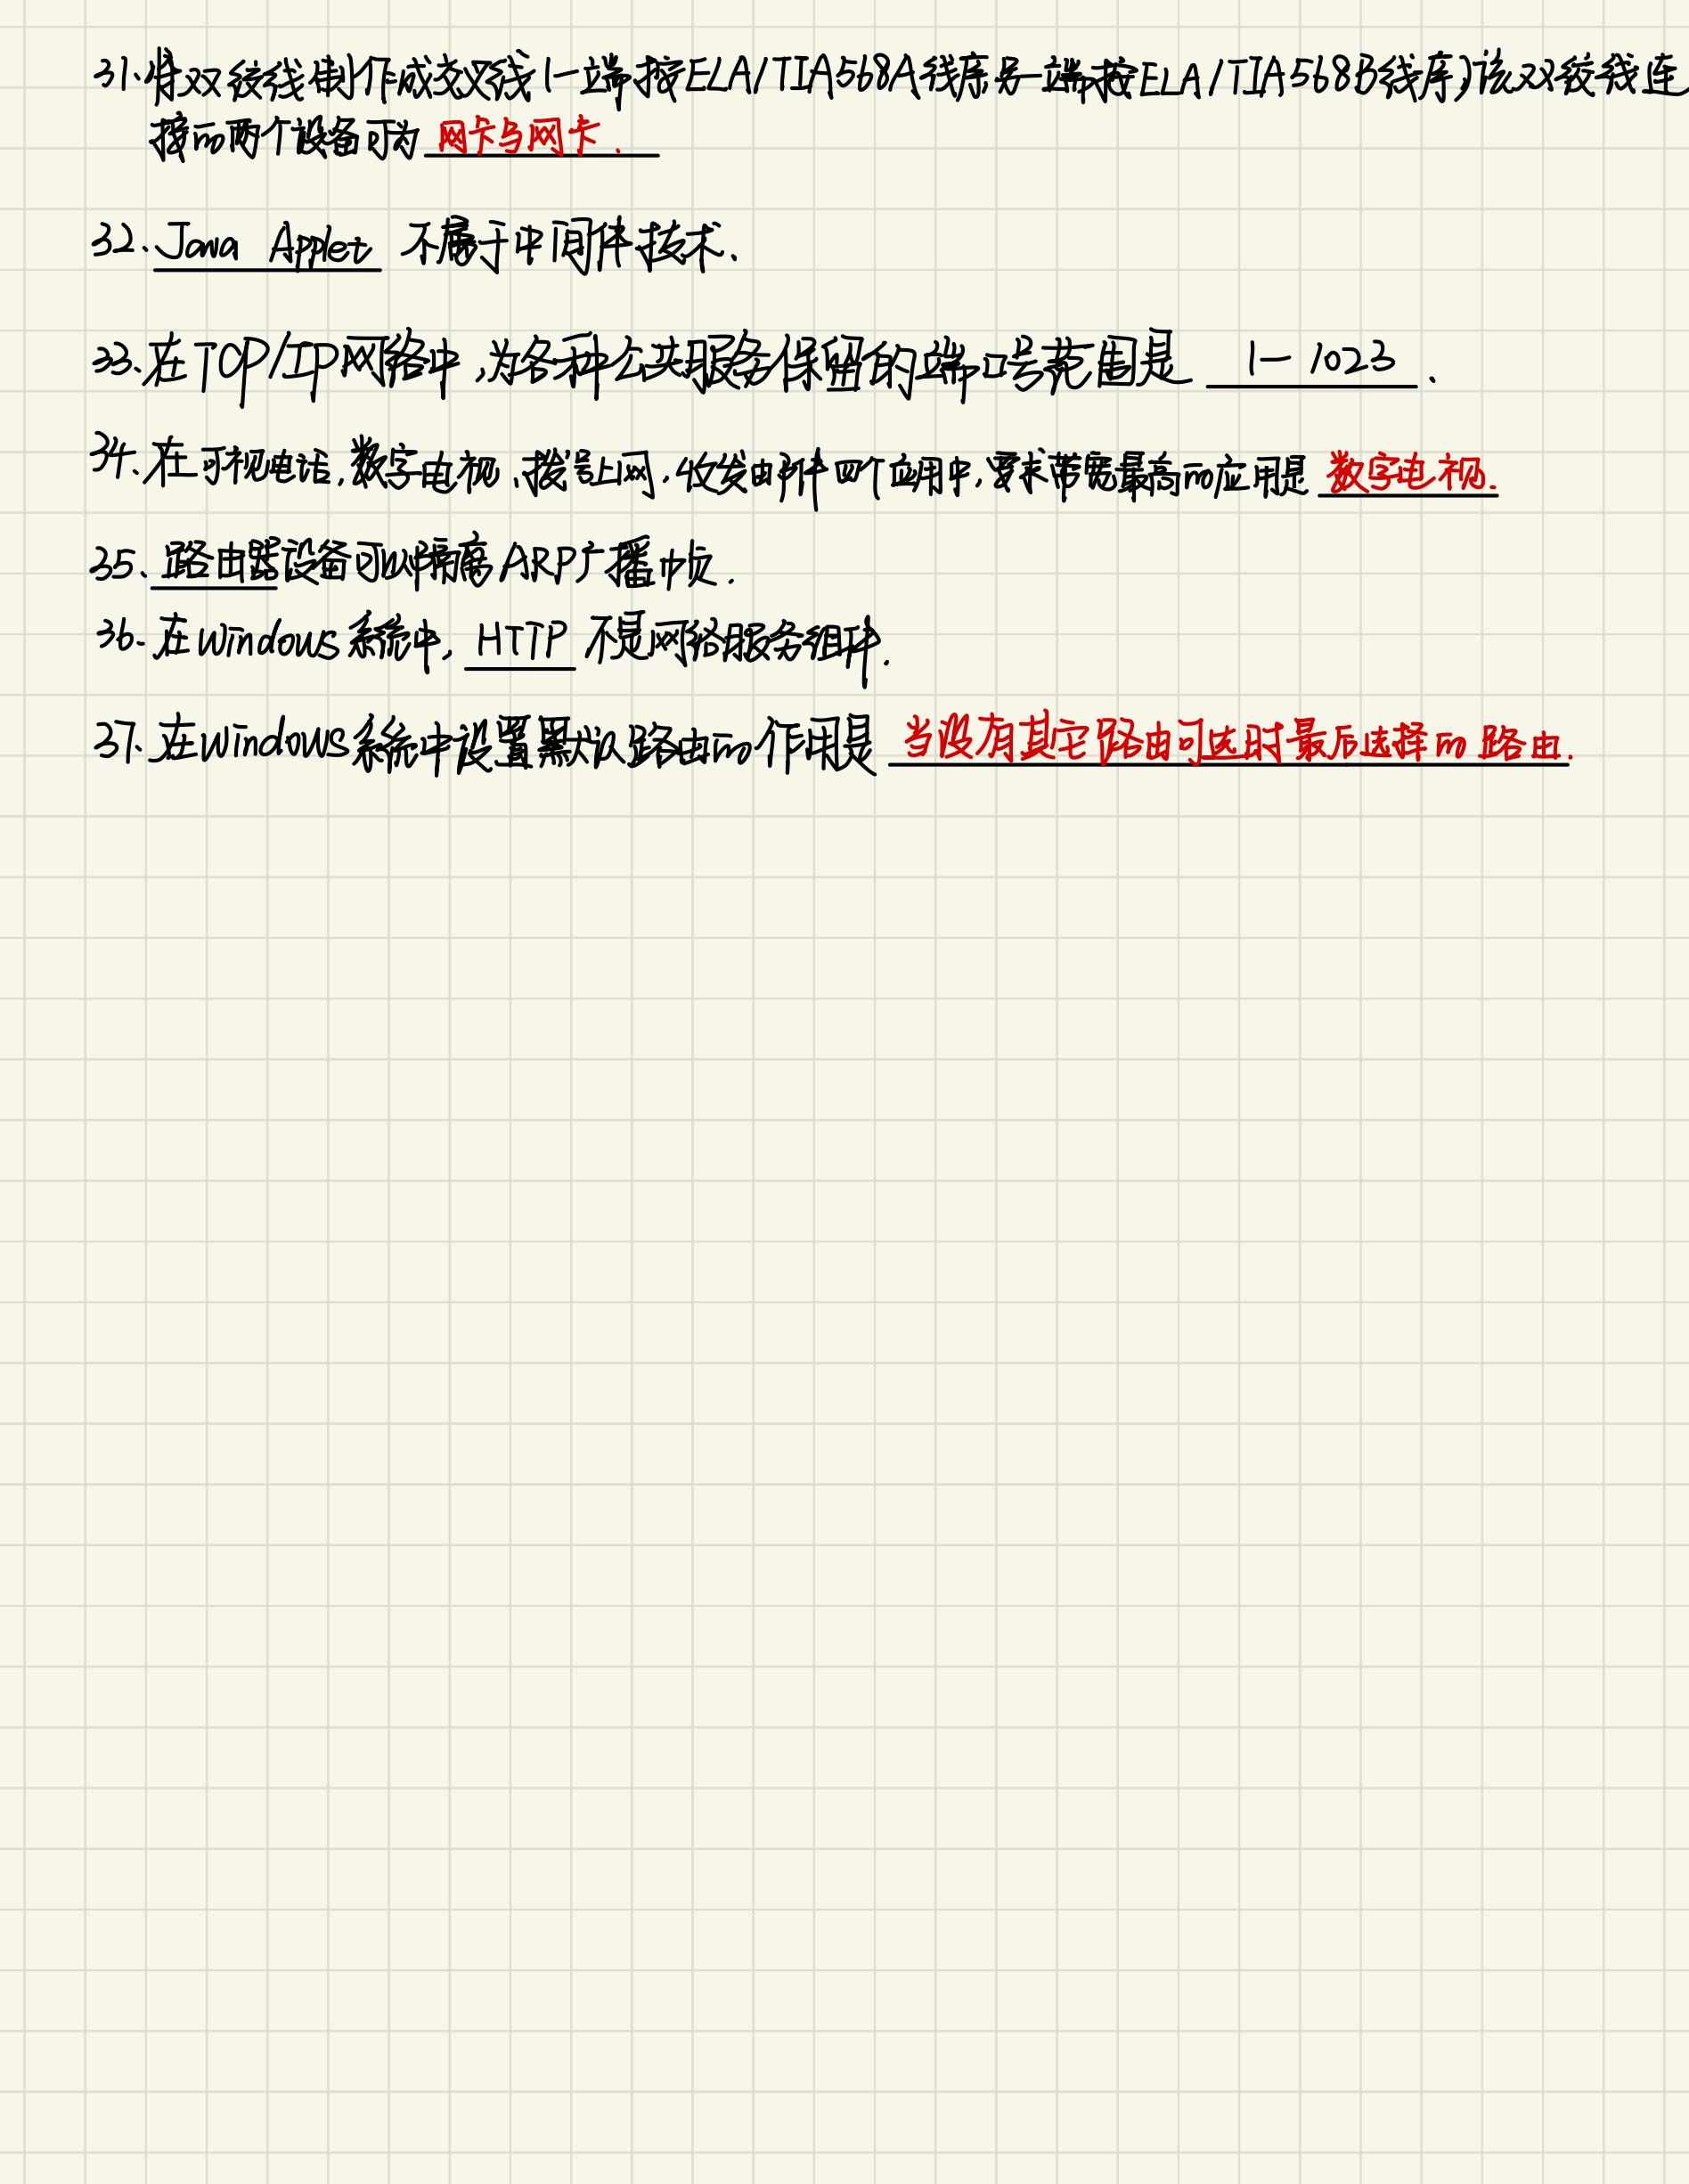 31.将双绞线制作成交叉线(一端按ELA/TIA568A线序,另一端按ELA/TIA568B线序)该双绞线连
接的两个设备可为 网卡与网卡.
32.Java Applet 不属于中间件技术.
33.在TCP/IP网络中,为各种公共服务保留的端口号范围是 1—1023.
34.在可视电话,数字电视、拨号上网,收发邮件四个应用中,要求带宽最高的应用是 数字电视.
35.路由器设备可以隔离ARP广播帧.
36.在Windows系统中,HTTP 不是网络服务组件.
37.在Windows系统中设置默认路由的作用是 当没有其它路由可选时最后选择的路由.